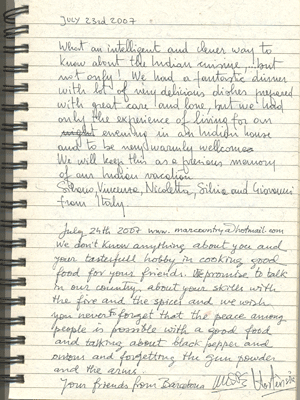 JULY 23rd 2007
What an intelligent and clever way to
know about the Indian cuisine, ... but
not only! We had a fantastic dinner
with lot of very delicious dishes prepared
with great care and love, but we had
only the experience of living for an
evening in an Indian house
and to be very warmly welcomed
We will keep this as a precious memory
of our Indian vacation
Silvano, Vincenza, Nicoletta, Silvia and Giovanni
from Italy.
July 24th 2007 www. marcountry@hotmail.com
We don't know anything about you and
your tastefull hobby in cooking good
food for your friends. We promise to talk
in our country, about your skills with
the fire and the spices and we wish
you never forget that the peace among
people is possible with a good food
and talking about black pepper and
onions and forgetting the gun powder
and the arms.
Your friends from Barcelona